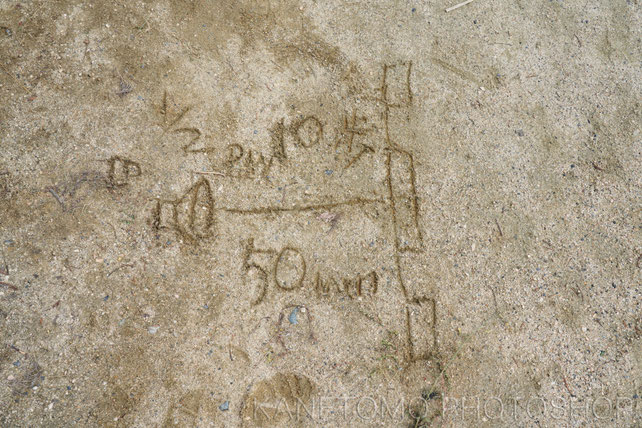 1/2
10歩
50mm
KANETOMO PHOTOSHOP